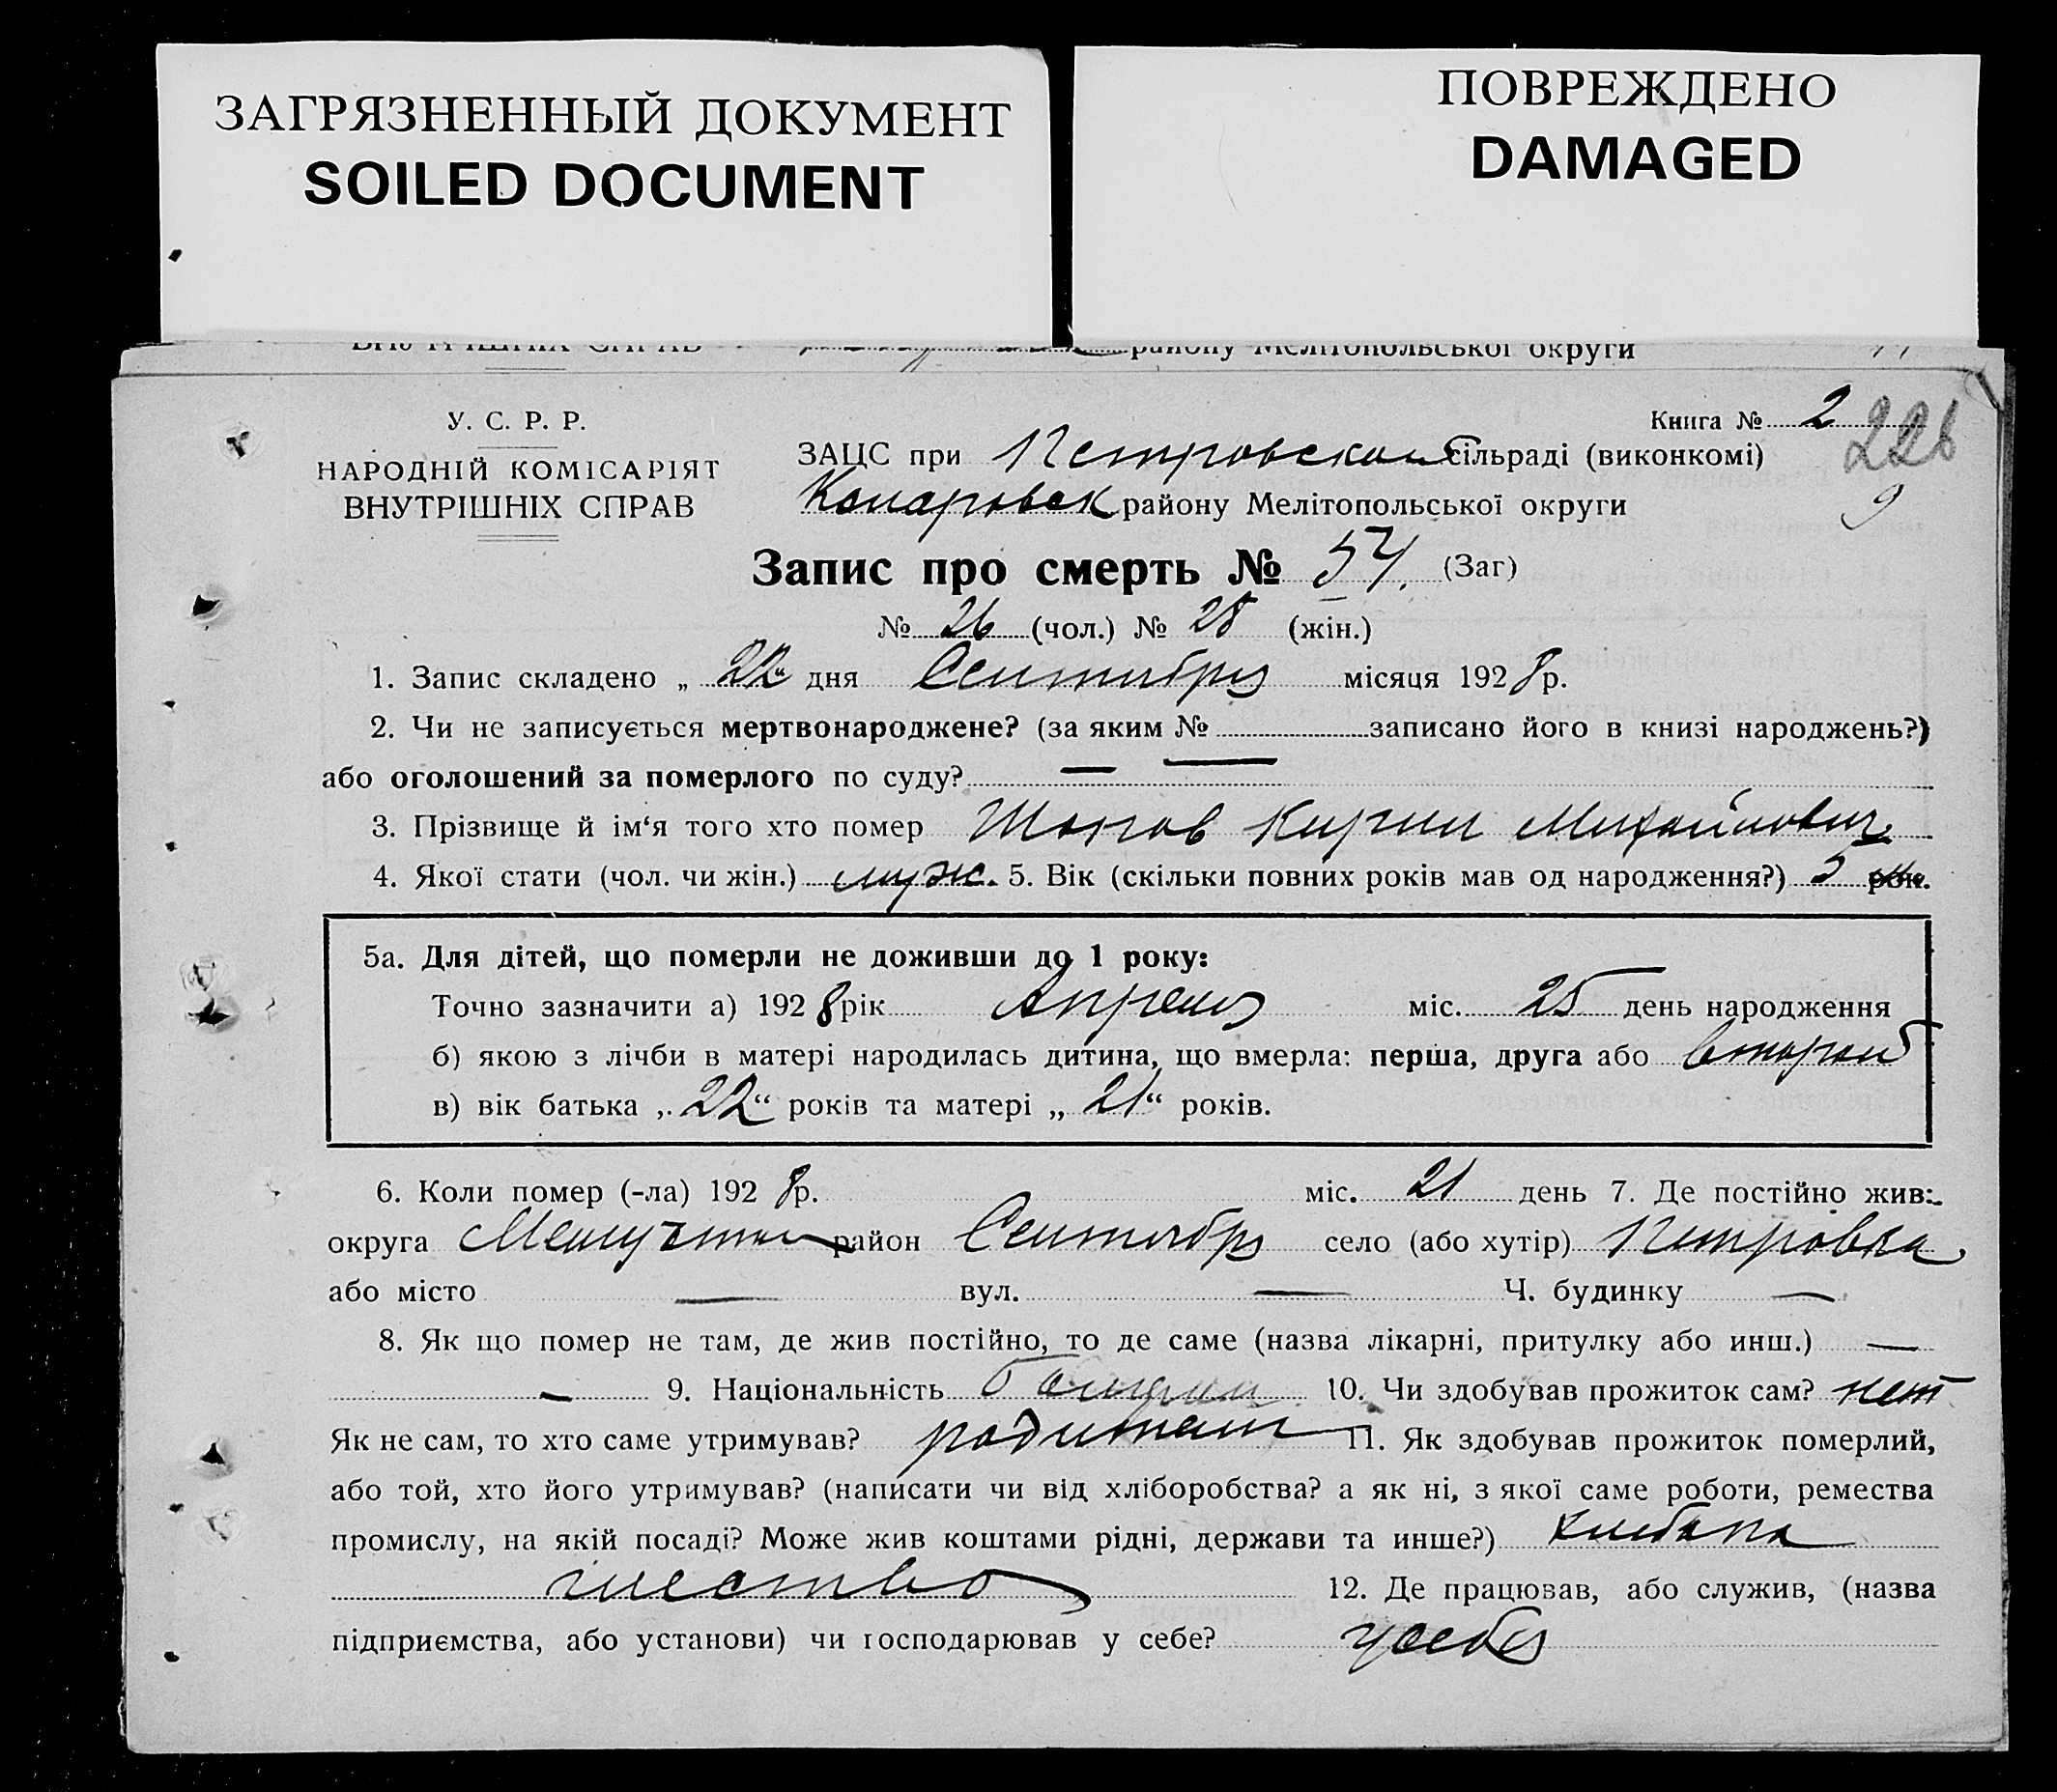 ЗАГРЯЗНЕННЫЙ ДОКУМЕНТ
SOILED DOCUMENT
ПОВРЕЖДЕНО
DAMAGED
ВНУТРІШНІХ СПРАВ району Мелітопольської округи
У. С. Р. Р.
НАРОДНІЙ КОМІСАРІЯТ
ВНУТРІШНІХ СПРАВ
Книга № 2
226
9
ЗАЦС при Петровской сільраді (виконкомі)
району Мелітопольської округи
Запис про смерть № 54. (Заг)
№ 26 (чол.) № 28 (жін.)
1. Запис складено „ 22 “ дня Сентября місяця 1928 р.
2. Чи не записується мертвонароджене? (за яким № — записано його в книзі народжень?)
або оголошений за померлого по суду? —
3. Прізвище й ім‘я того хто помер Кирил Михайлович
4. Якої стати (чол. чи жін.) муж. 5. Вік (скільки повних років мав од народження?) 5
5а. Для дітей, що померли не доживши до 1 року:
Точно зазначити а) 1928 рік Апреля міс. 25 день народження
б) якою з лічби в матері народилась дитина, що вмерла: перша, друга або второй
в) вік батька „ 22 “ років та матері „ 21 “ років.
6. Коли помер (-ла) 1928 р. міс. 21 день 7. Де постійно жив:
округа район Сентябрь село (або хутір) Петровка
або місто — вул. — Ч. будинку —
8. Як що помер не там, де жив постійно, то де саме (назва лікарні, притулку або инш.) —
— 9. Національність 10. Чи здобував прожиток сам? нет
Як не сам, то хто саме утримував? родители 11. Як здобував прожиток померлий,
або той, хто його утримував? (написати чи від хліборобства? а як ні, з якої саме роботи, ремества
промислу, на якій посаді? Може жив коштами рідні, держави та инше?) хлебопа
шество 12. Де працював, або служив, (назва
підприємства, або установи) чи господарював у себе? у себя